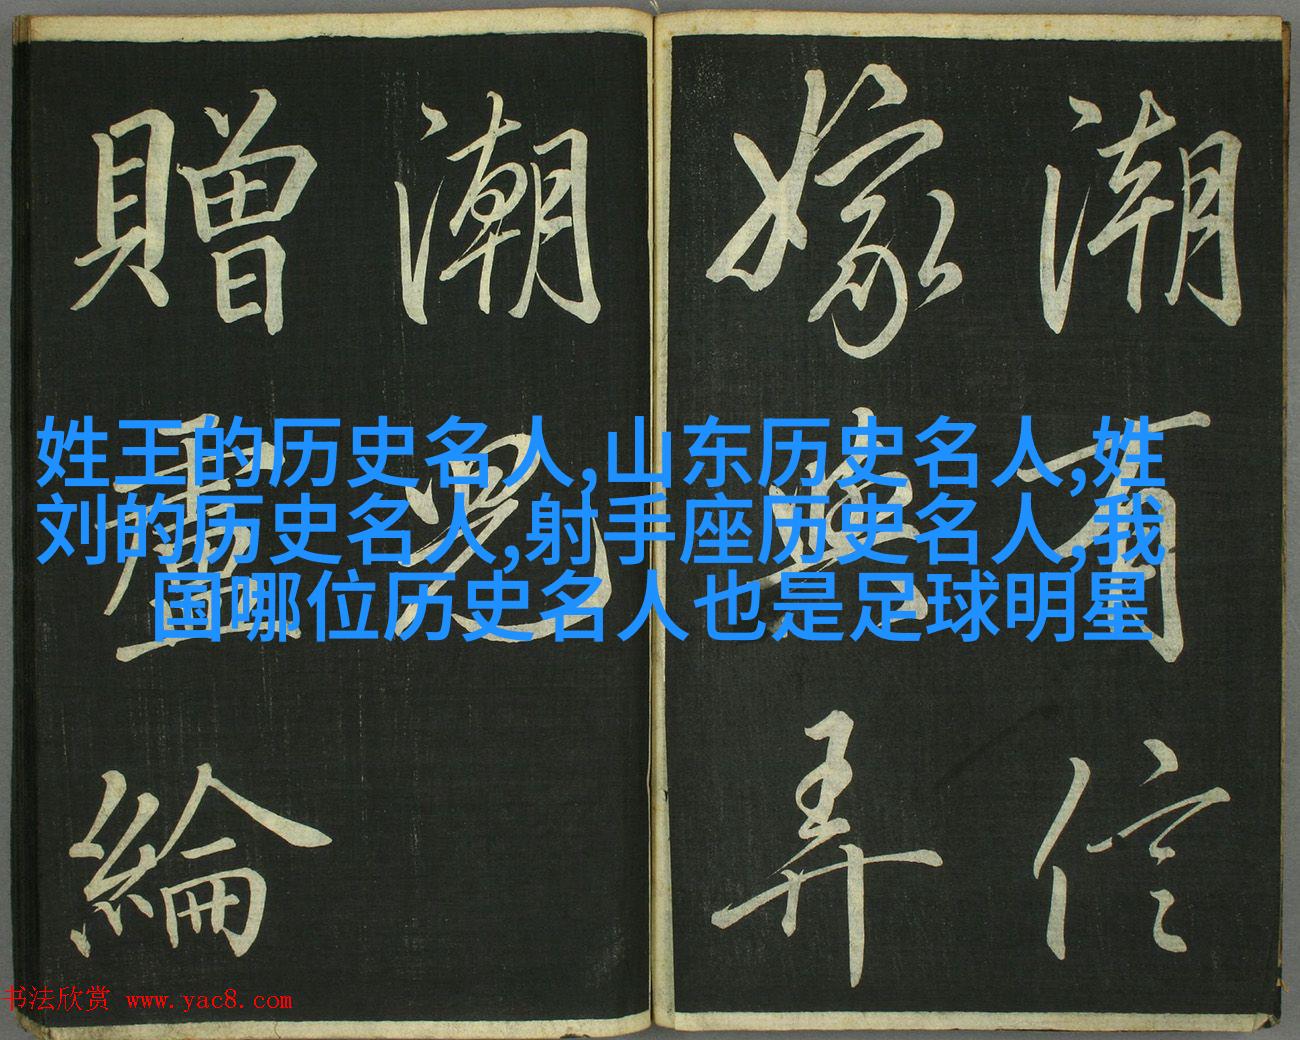 潮有信
嫁與弄
潮兒
贈盧綸
姓王的历史名人,山东历史名人,姓
刘的历史名人,射手座历史名人,我
国哪位历史名人也是足球明星
书法欣赏 www.yac8.com